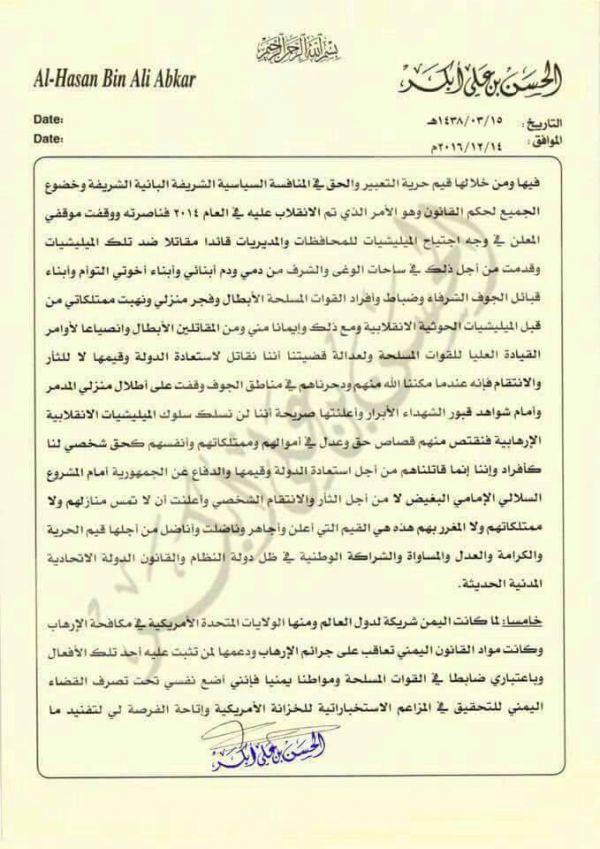 بسم الله الرحمن الرحيم
الحسن بن علي أبكر
Al-Hasan Bin Ali Abkar
التاريخ: ١٤٣٨/٠٣/١٥هـ Date:
الموافق: ٢٠١٦/١٢/١٤م Date:
فيها ومن خلالها قيم حرية التعبير والحق في المنافسة السياسية الشريفة البانية الشريفة وخضوع
الجميع لحكم القانون وهو الأمر الذي تم الانقلاب عليه في العام ٢٠١٤ فناصرته ووقفت موقفي
المعلن في وجه اجتياح الميليشيات للمحافظات والمديريات قائدا مقاتلا ضد تلك الميليشيات
وقدمت من أجل ذلك في ساحات الوغى والشرف من دمي ودم أبنائي وأبناء أخوتي التوأم وأبناء
قبائل الجوف الشرفاء وضباط وأفراد القوات المسلحة الأبطال وفجر منزلي ونهبت ممتلكاتي من
قبل الميليشيات الحوثية الانقلابية ومع ذلك وإيمانا مني ومن المقاتلين الأبطال وانصياعا لأوامر
القيادة العليا للقوات المسلحة ولعدالة قضيتنا أننا نقاتل لاستعادة الدولة وقيمها لا للثأر
والانتقام فإنه عندما مكننا الله منهم ودحرناهم في مناطق الجوف وقفت على أطلال منزلي المدمر
وأمام شواهد قبور الشهداء الأبرار وأعلنتها صريحة أننا لن نسلك سلوك الميليشيات الانقلابية
الإرهابية فنقتص منهم قصاص حق وعدل في أموالهم وممتلكاتهم وأنفسهم كحق شخصي لنا
كأفراد وإننا إنما قاتلناهم من أجل استعادة الدولة وقيمها والدفاع عن الجمهورية أمام المشروع
السلالي الإمامي البغيض لا من أجل الثأر والانتقام الشخصي وأعلنت أن لا تمس منازلهم ولا
ممتلكاتهم ولا المغرر بهم هذه هي القيم التي أعلن وأجاهر وناضلت وأناضل من أجلها قيم الحرية
والكرامة والعدل والمساواة والشراكة الوطنية في ظل دولة النظام والقانون الدولة الاتحادية
المدنية الحديثة.
خامسا: لما كانت اليمن شريكة لدول العالم ومنها الولايات المتحدة الأمريكية في مكافحة الإرهاب
وكانت مواد القانون اليمني تعاقب على جرائم الإرهاب ودعمها لمن تثبت عليه أحد تلك الأفعال
وباعتباري ضابطا في القوات المسلحة ومواطنا يمنيا فإنني أضع نفسي تحت تصرف القضاء
اليمني للتحقيق في المزاعم الاستخباراتية للخزانة الأمريكية وإتاحة الفرصة لي لتفنيد ما
الحسن بن علي أبكر